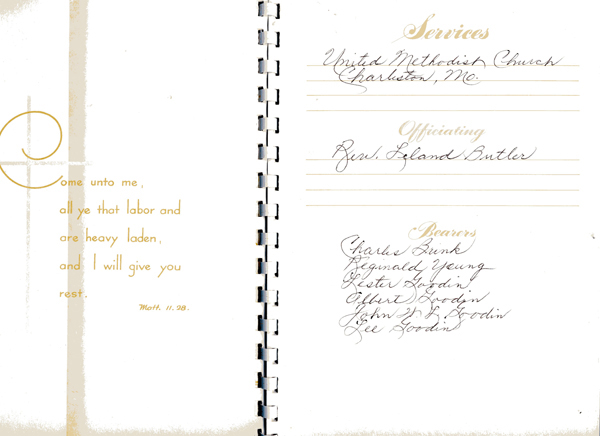 Come unto me,
all ye that labor and
are heavy laden,
and I will give you
rest.
Matt. 11.28.
Services
United Methodist Church
Charleston, Mo.
Officiating
Rev. Leland Butler
Bearers
Charles Brink
Reginald Young
Lester Goodin
Albert Goodin
John H L Goodin
Lee Goodin